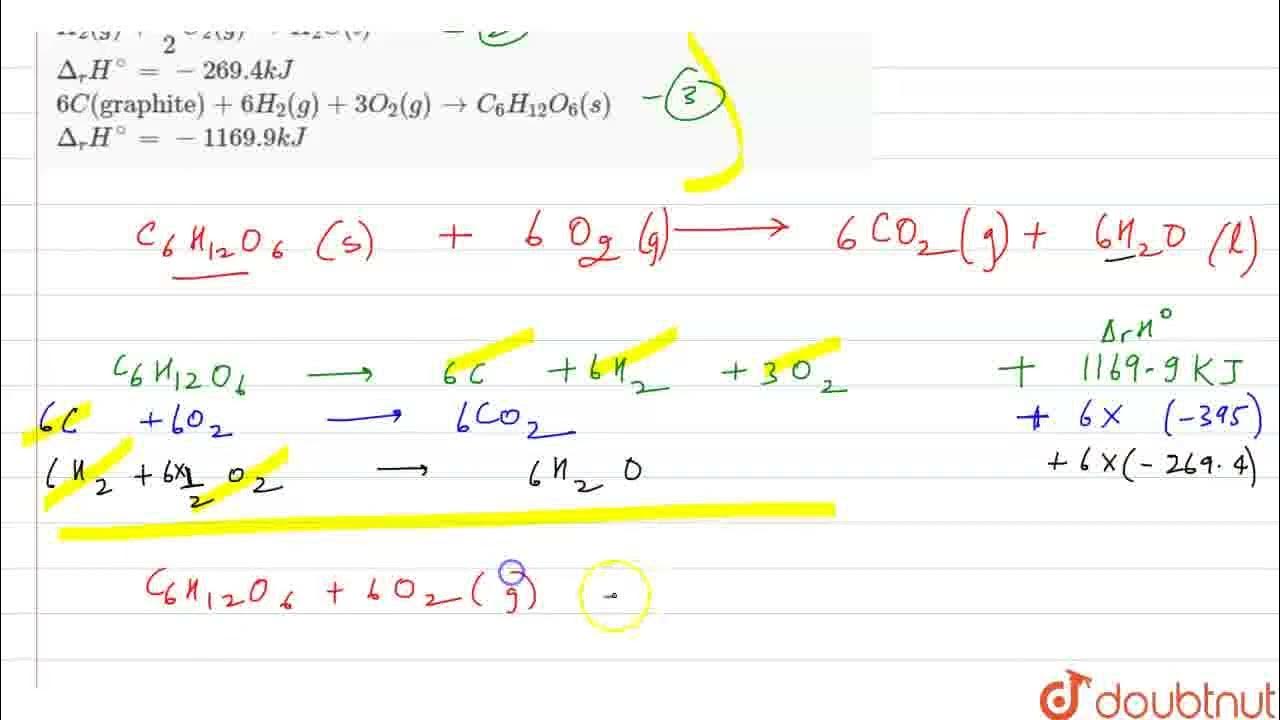 2
Δ_rH° = − 269.4kJ
6C(graphite) + 6H₂(g) + 3O₂(g) → C₆H₁₂O₆(s) - 3
Δ_rH° = − 1169.9kJ
C₆H₁₂O₆ (s) + 6 O₂ (g) → 6CO₂(g) + 6H₂O (l)
ΔrH°
C₆H₁₂O₆ → 6C + 6H₂ + 3O₂ + 1169.9 KJ
6C + 6O₂ → 6CO₂ + 6 X (-395)
6H₂ + 6×1/2 O₂ → 6H₂O + 6 X (- 269.4)
C₆H₁₂O₆ + 6O₂ (g) -
doubtnut